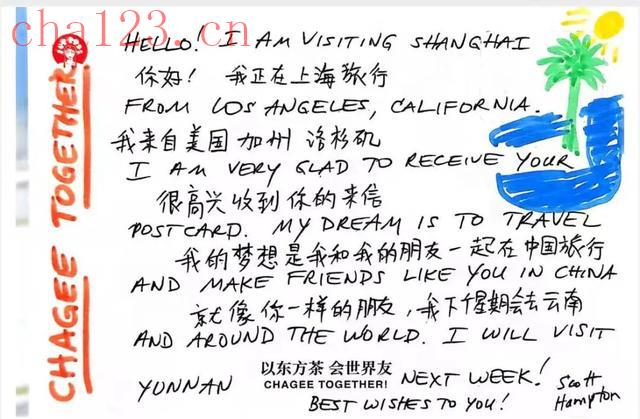 cha123.cn
CHAGEE TOGETHER
HELLO! I AM VISITING SHANGHAI
你好! 我正在上海旅行
FROM LOS ANGELES, CALIFORNIA.
我来自美国加州 洛杉矶
I AM VERY GLAD TO RECEIVE YOUR
很高兴收到你的来信
POSTCARD. MY DREAM IS TO TRAVEL
我的梦想是我和我的朋友一起在中国旅行
AND MAKE FRIENDS LIKE YOU IN CHINA
就像你一样的朋友, 我下星期会去云南
AND AROUND THE WORLD. I WILL VISIT
以东方茶 会世界友
CHAGEE TOGETHER!
YUNNAN NEXT WEEK!
BEST WISHES TO YOU!
Scott
Hampton